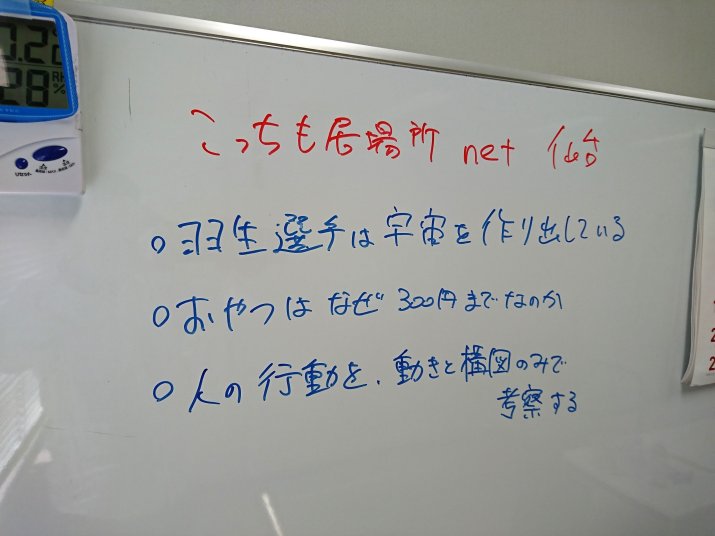 28
RH
%
リセット
こっちも居場所 net 仙台
○羽生選手は宇宙を作り出している
○おやつはなぜ300円までなのか
○人の行動を、動きと構図のみで
考察する
2
2